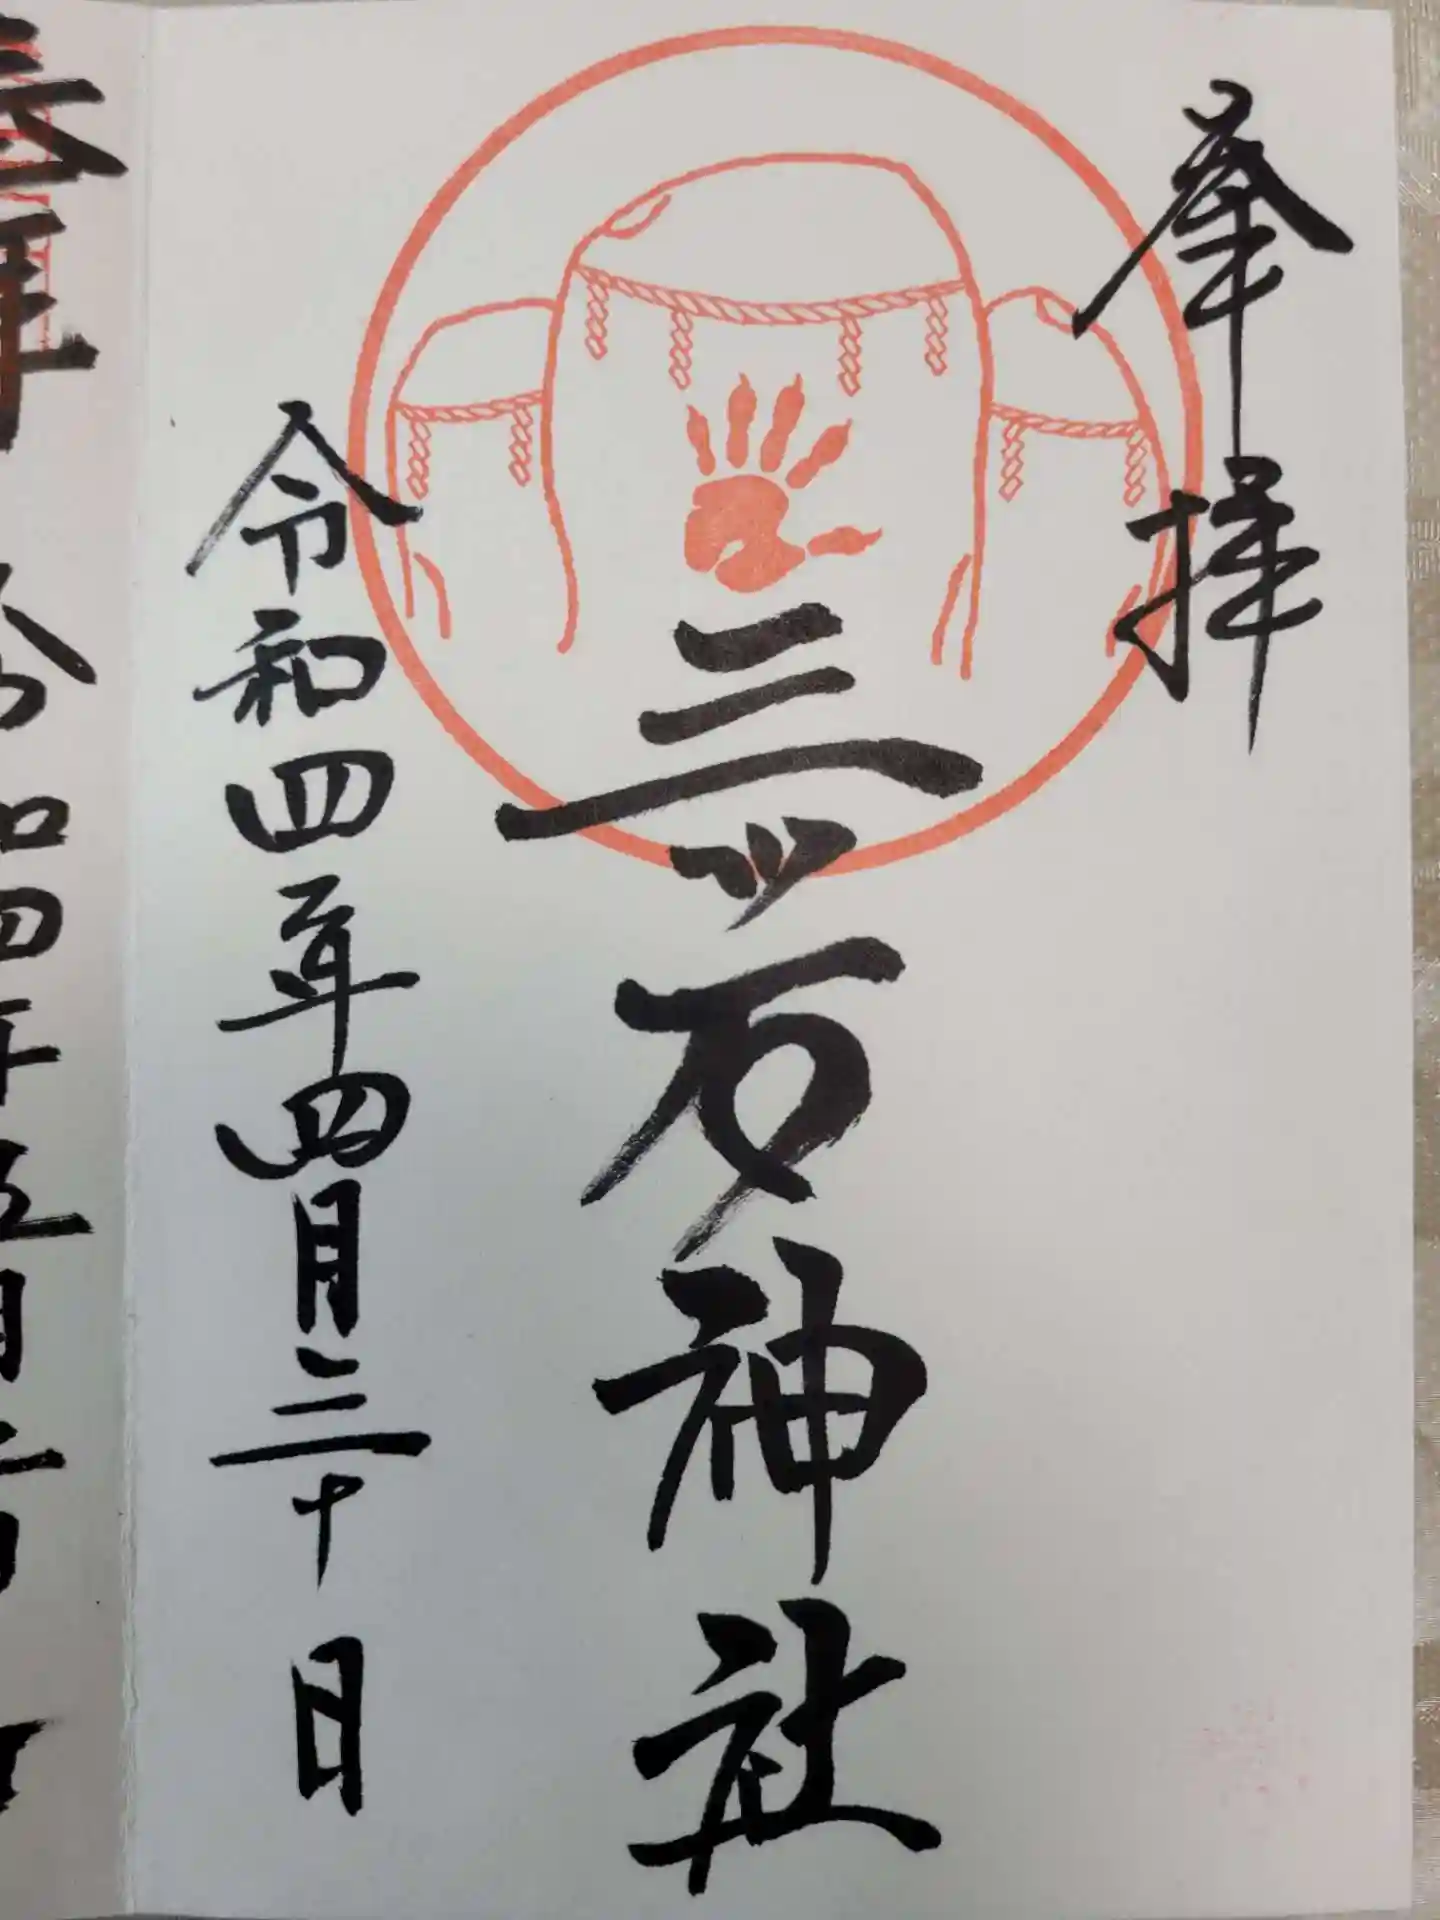 奉拝
三ッ石神社
令和四年四月三十日
奉拝
令和四年五月二日